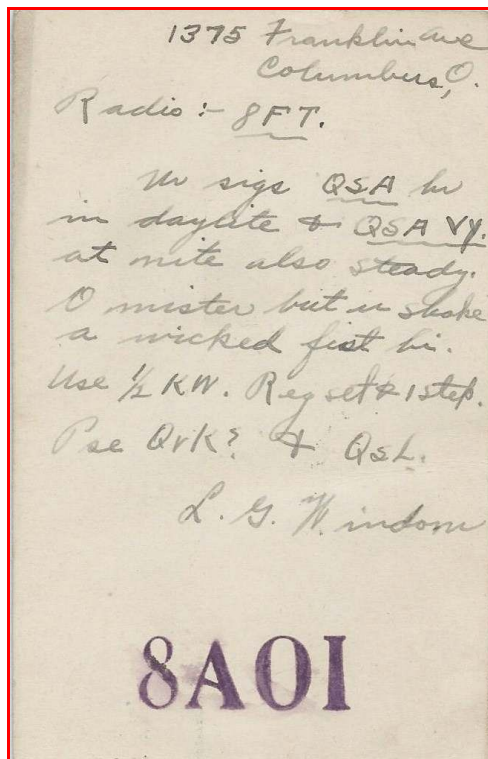 1375 Franklin Ave
Columbus, O.
Radio:- 8FT.
Ur sigs QSA hr
in daylite & QSA VY.
at nite also steady.
O mister but u shake
a wicked fist hi.
Use ½ KW. Reg set & 1 step.
Pse QrK? & QSL.
L. G. Windom
8AOI